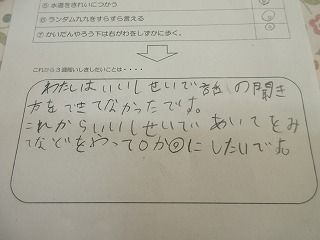 ⑤ 水道をきれいにつかう
⑥ ランダム九九をすらすら言える
⑦ かいだんやろう下は右がわをしずかに歩く。
これから3週間いしきしたいことは・・・・
わたしは いいしせいで 話 の聞き
方をできてなかったです。
これからいいしせいで あいてをみ
てなどをやって○か◎に したいです。